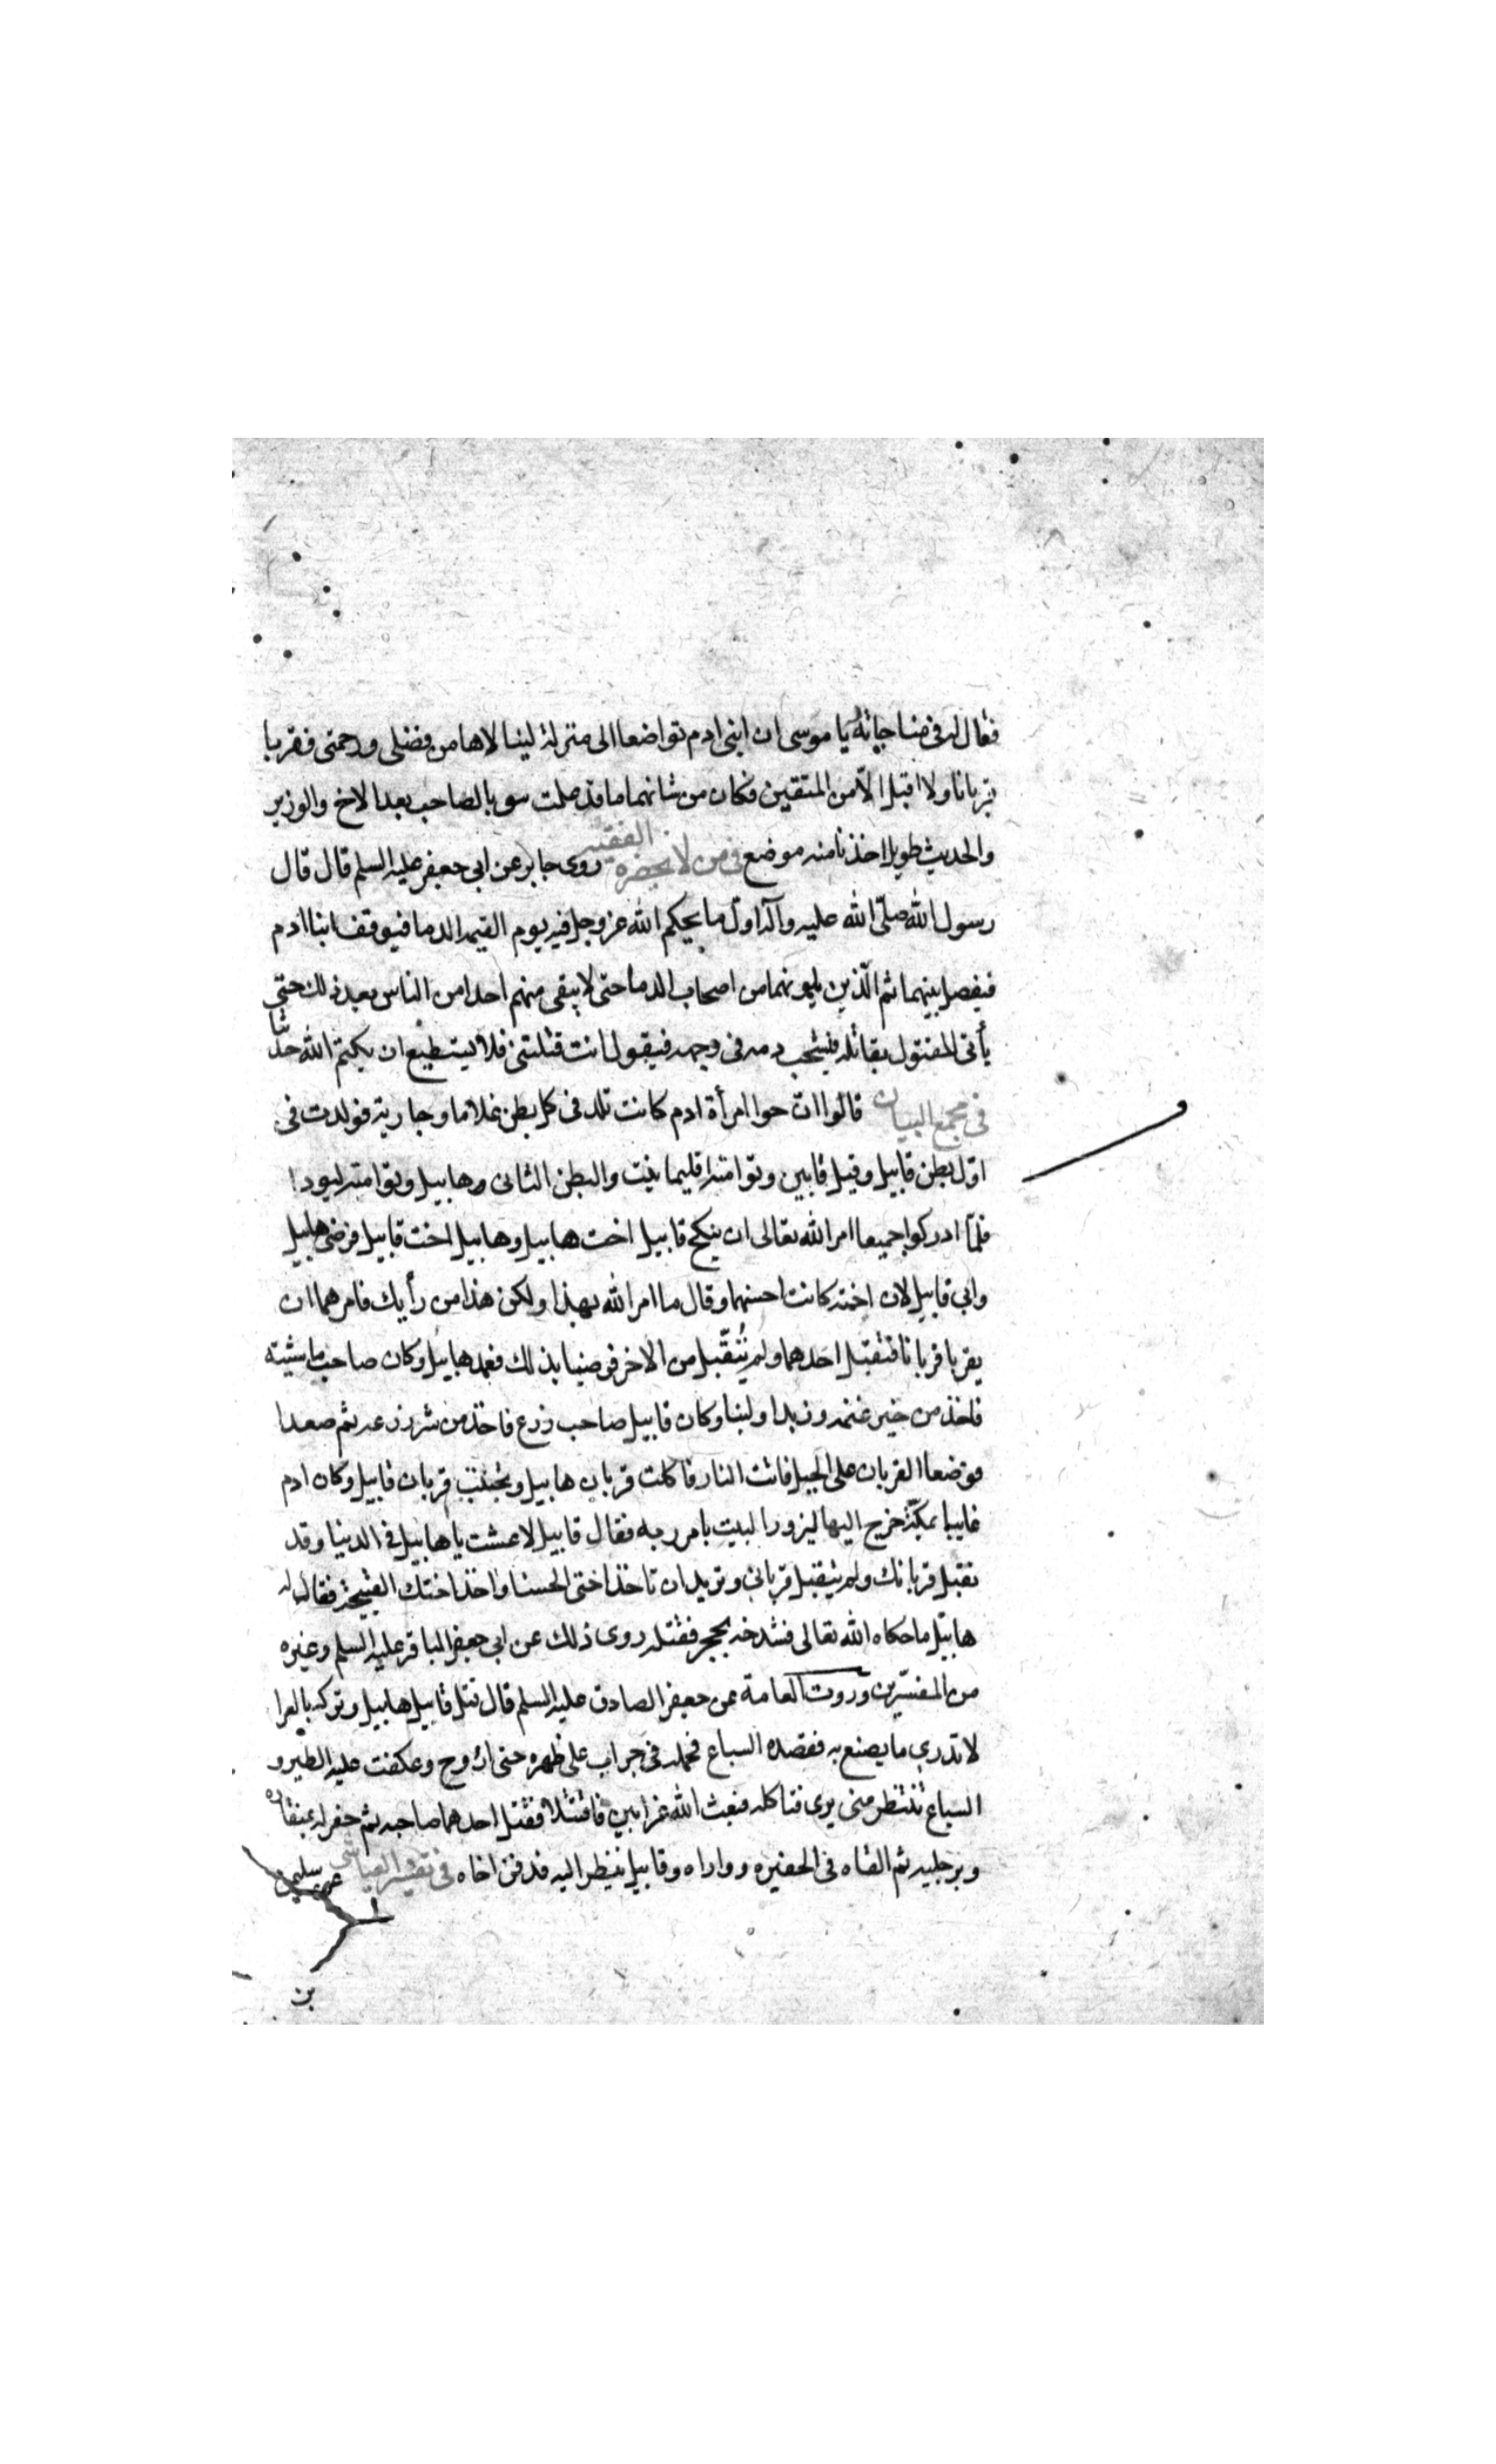 فقال له في مناجاته يا موسى ان ابنى ادم تواضعا الى منزلة لينالاها من فضلى ورحمتى فقربا
قربانا ولا اقبل الّا من المتقين فكان من شانهما ما قد علمت سى بالصاحب بعد الاخ والوزير
والحديث طويل اخذنا منه موضع في من لا يحضره الفقيه روى جابر عن ابى جعفر عليه السلم قال قال
رسول الله صلّى الله عليه وآله اوّل ما يحكم الله عز وجل فيه يوم القيمه الدما فيوقف ابنا ادم
فيفصل بينهما ثم الّذين يلونهما من اصحاب الدما حتى لا يبقى منهم احدا من الناس بعد ذلك حتى
يأتى المقتول بقاتله فيشخب دمه فى وجهه فيقول انت قتلتنى فلا يستطيع ان يكتم الله حديثا
فى مجمع البيان قالوا انّ حوا امرأة ادم كانت تلد فى كل بطن غلاما وجارية فولدت فى
اوّل بطن قابيل وقيل قابين وتوامته اقليما بنت والبطن الثانى هابيل وتوامته ليودا
فلمّا ادركوا جميعا امر الله تعالى ان ينكح قابيل اخت هابيل وهابيل اخت قابيل فرضى هابيل
وابى قابيل لان اخته كانت احسنهما وقال ما امر الله بهذا ولكن هذا من رأيك فامرهما ان
يقربا قربانا فتقبّل احدهما ولم يُتقّبل من الاخر فرضيا بذلك فعمد هابيل وكان صاحب ماشيته
فاخذ من خير غنمه وزبدا ولبنا وكان قابيل صاحب زرع فاخذ من شر زرعه ثم صعدا
فوضعا القربان على الجبل فاتت النار فاكلت قربان هابيل وتجنبت قربان قابيل وكان ادم
غايبا بمكّة خرج اليها ليزور البيت بامر ربه فقال قابيل لا عشت يا هابيل فى الدنيا وقد
تقبل قربانك ولم يتقبل قربانى وتريد ان تاخذ اختى الحسنا واخذ اختك القبيحة فقال له
هابيل ما حكاه الله تعالى فشدخه بحجر فقتله روى ذلك عن ابى جعفر الباقر عليه السلم وغيره
من المفسّرين وروت العامة عن جعفر الصادق عليه السلم قال قتل قابيل هابيل وتركه بالعرا
لا تدرى ما يصنع به فقصده السباع فحمله فى جراب على ظهره حتى اروح وعكفت عليه الطير و
السباع تنتظر متى يرى فتاكله فبعث الله غرابين فاقتتلا فقتل احدهما صاحبه ثم حفر له بمنقاره
وبرجليه ثم القاه فى الحفيره وواراه وقابيل ينظر اليه فدفن اخاه فى تفسير العياشى عن سليمن
بن